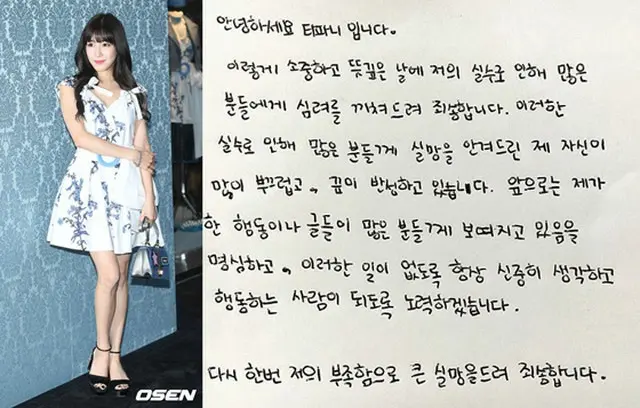 안녕하세요 티파니 입니다.
이렇게 소중하고 뜻깊은 날에 저의 실수로 인해 많은
분들에게 심려를 끼쳐드려 죄송합니다. 이러한
실수로 인해 많은 분들께 실망을 안겨드린 제 자신이
많이 부끄럽고, 깊이 반성하고 있습니다. 앞으로는 제가
한 행동이나 글들이 많은 분들께 보여지고 있음을
명심하고, 이러한 일이 없도록 항상 신중히 생각하고
행동하는 사람이 되도록 노력하겠습니다.
다시 한번 저의 부족함으로 큰 실망을드려 죄송합니다.
OSEN